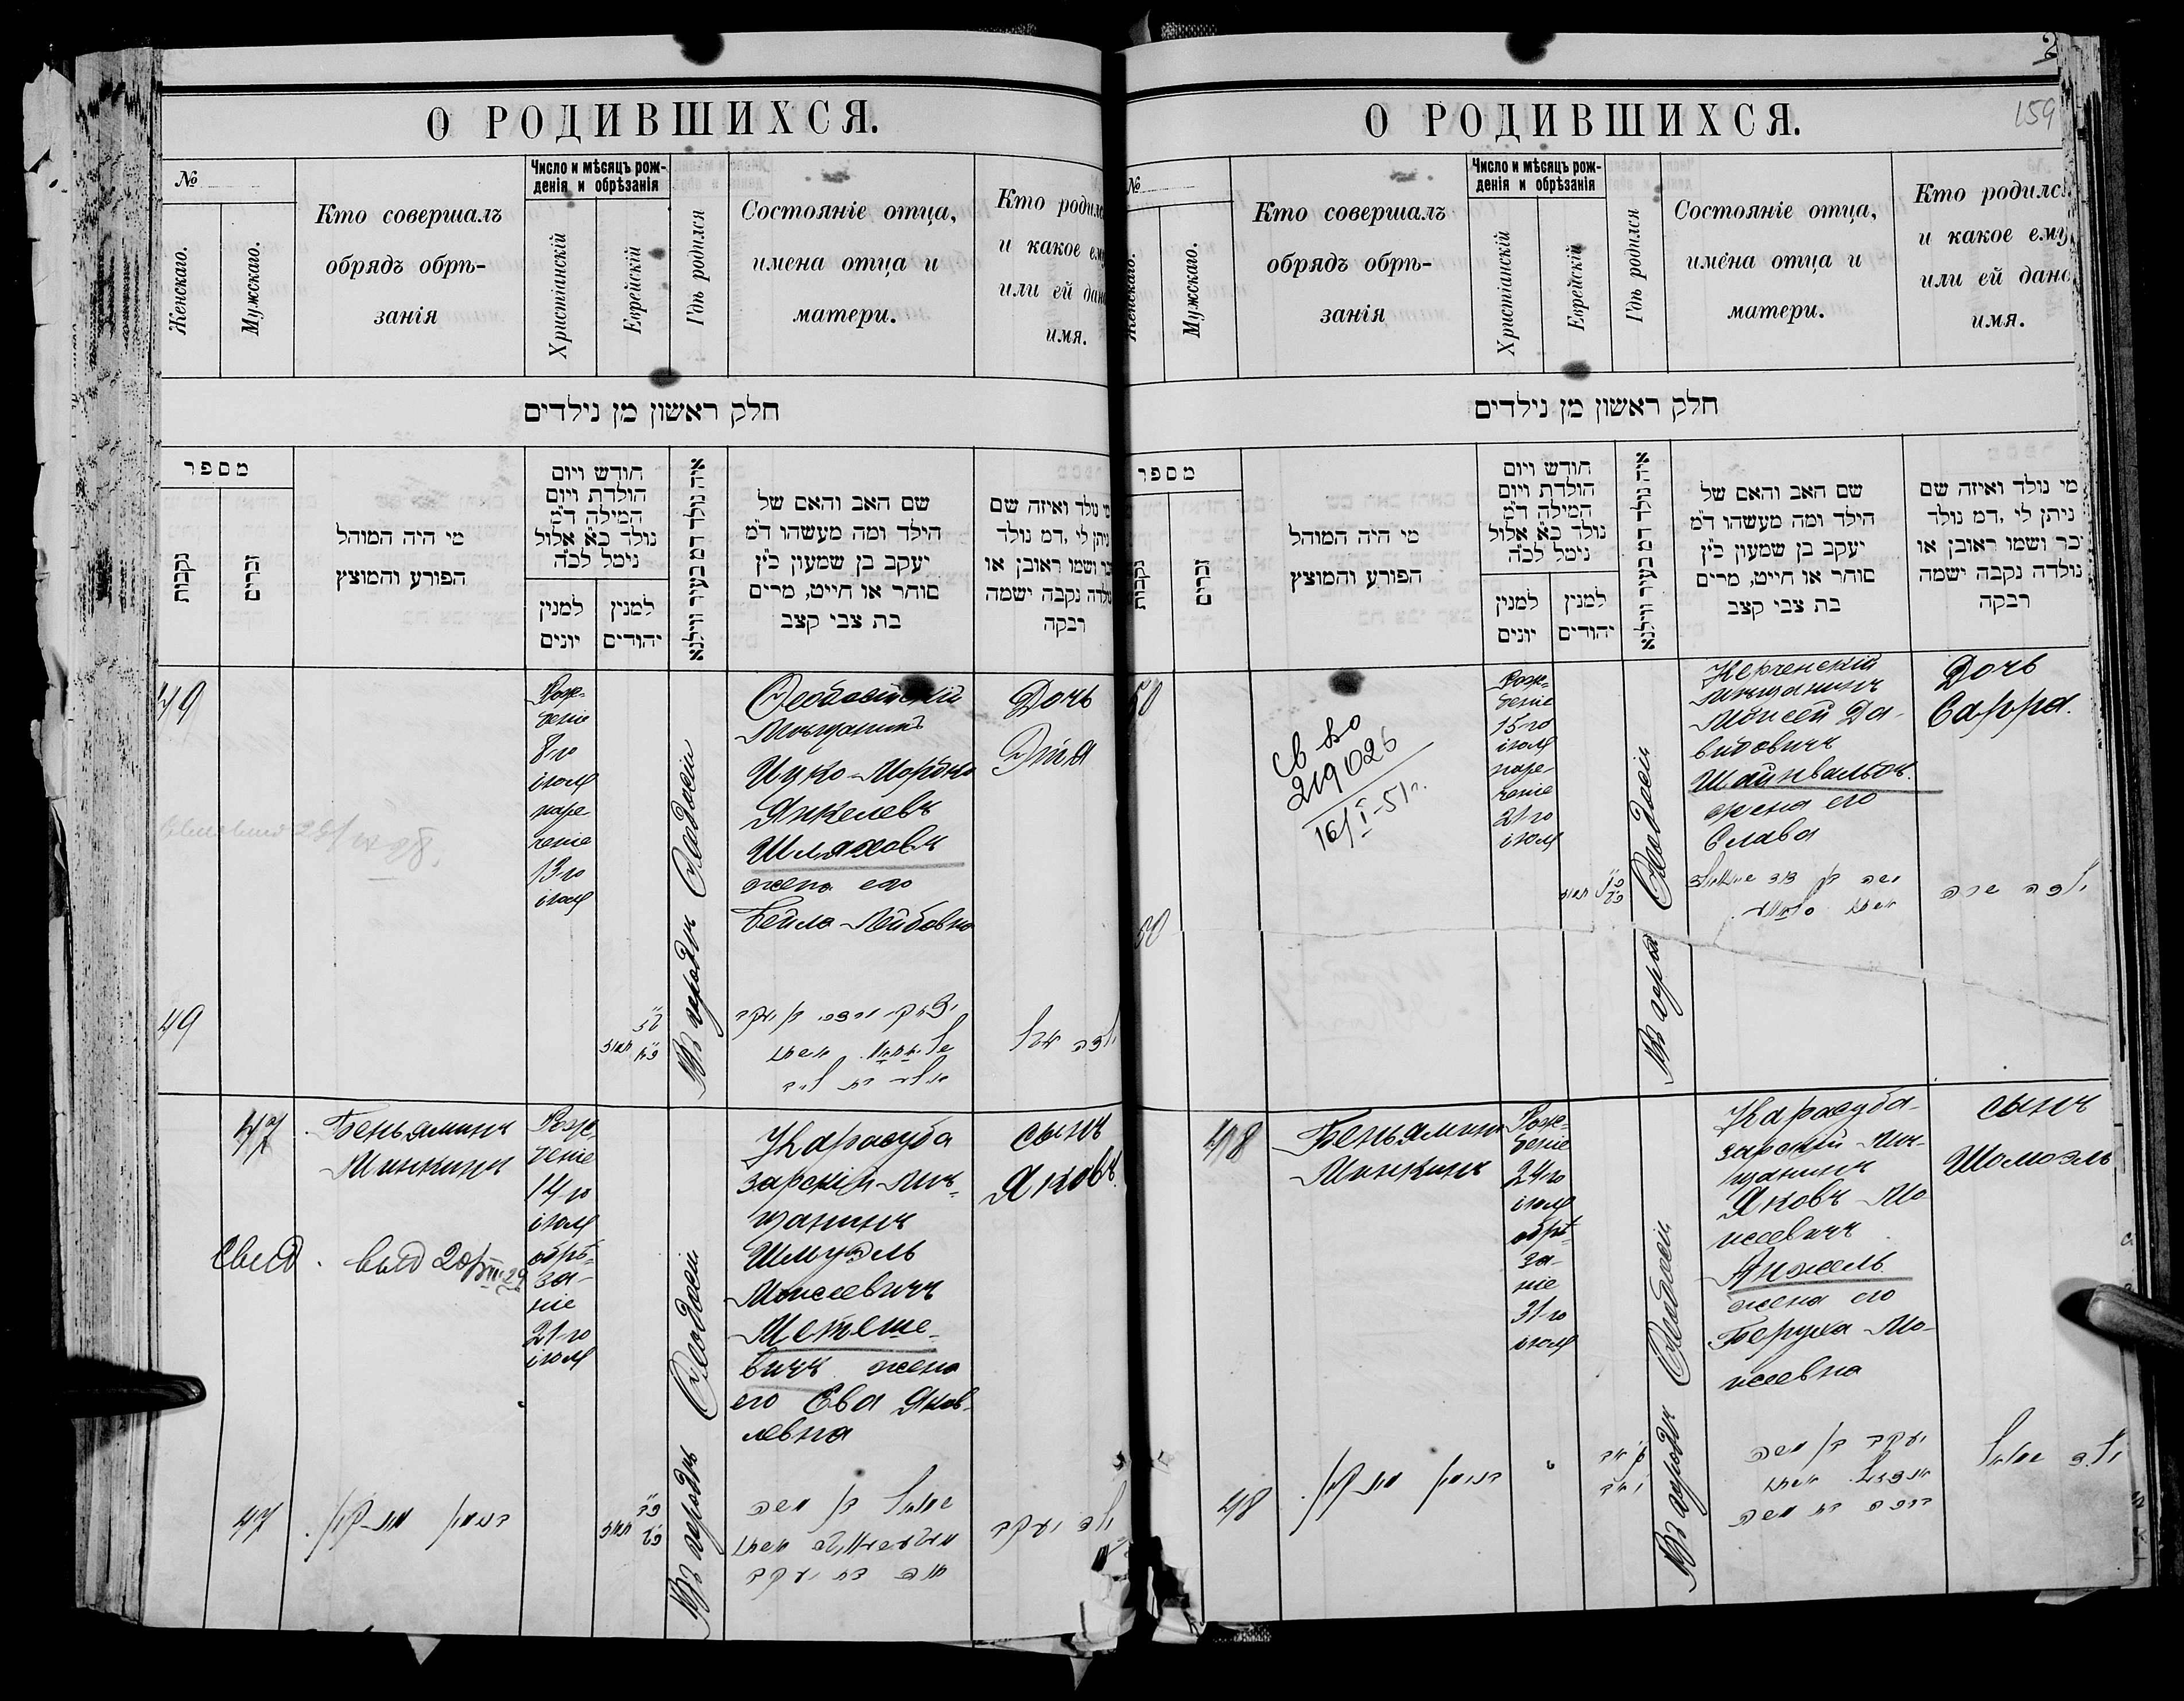 О РОДИВШИХСЯ.
№
Женскаго.
Мужскаго.
Кто совершалъ
обрядъ обрѣ-
занія
Число и мѣсяцъ рож-
денія и обрѣзанія
Христіанскій
Еврейскій
Гдѣ родился
Состояніе отца,
имена отца и
матери.
Кто родилс
и какое ем
или ей дан
имя.
חלק ראשון מן נילדים
מספר
נקבות
זכרים
מי היה המוהל
הפורע והמוצץ
חודש ויום
הולדת ויום
המילה ד״מ
נולד כ״א אלול
נימל לכ״ה
למנין
יונים
למנין
יהודים
איה נולד דמ בעיר ווילנא
שם האב והאם של
הילד ומה מעשהו ד״מ
יעקב בן שמעון כ״ץ
סוחר או חייט, מרים
בת צבי קצב
מי נולד ואיזה שם
ניתן לי ,דמ נולד
זכר ושמו ראובן או
נולדה נקבה ישמה
רבקה
49
Рож-
деніе
8-го
іюля
наре
ченіе
13-го
іюля
Въ городѣ Ѳеодосіи
Ѳеодосійскій
мѣщанинъ
Ицко-Мордко
Янкелевъ
Шляховъ
жена его
Бейла-Лейбовна
Дочь
Этля
49
תמוז
יצחק מרדכי בן יעקב
אשתו
ביילא בת לייב
ילדה אטל
47
Беньяминъ
Минкинъ
Рож-
деніе
14-го
іюля
обрѣ-
за-
ніе
21-го
іюля
Въ городѣ Ѳеодосіи
Карасуба
зарскій мѣ-
щанинъ
Шмуэль
Моисеевичъ
Метеше-
вичъ жена
его Ева Яков-
левна
сынъ
Яковъ.
выд 20/VIII 29
47
בנימן מינקין.
תמוז
שמואל בן משה
אשתו
חוה בת יעקב
ילד יעקב
О РОДИВШИХСЯ.
159
№
Женскаго.
Мужскаго.
Кто совершалъ
обрядъ обрѣ-
занія
Число и мѣсяцъ рож-
денія и обрѣзанія
Христіанскій
Еврейскій
Гдѣ родился
Состояніе отца,
имена отца и
матери.
Кто родилс
и какое ему
или ей дано
имя.
חלק ראשון מן נילדים
מספר
נקבות
זכרים
מי היה המוהל
הפורע והמוצץ
חודש ויום
הולדת ויום
המילה ד״מ
נולד כ״א אלול
נימל לכ״ה
למנין
יונים
למנין
יהודים
איה נולד דמ בעיר ווילנא
שם האב והאם של
הילד ומה מעשהו ד״מ
יעקב בן שמעון כ״ץ
סוחר או חייט, מרים
בת צבי קצב
מי נולד ואיזה שם
ניתן לי ,דמ נולד
זכר ושמו ראובן או
נולדה נקבה ישמה
רבקה
50
св во
219026
16/I-51г.
Рож-
деніе
15-го
іюля
наре-
ченіе
21-го
іюля
Въ городѣ Ѳеодосіи
Керченскій
мѣщанинъ
Моисей Да-
видовичъ
Шайнвальдъ
жена его
Слава
Дочь
Сарра.
50
תמוז
משה בן דוד
אשתו
ילדה שרה
48
Беньяминъ
Минкинъ
Рож-
деніе
24-го
іюля
обрѣ-
за-
ніе
31-го
іюля
Въ городѣ Ѳеодосіи
Карасуба-
зарскій мѣ-
щанинъ
Яковъ Мо
исеевичъ
Анжель
жена его
Беруха Мо-
исеевна
сынъ
Шомоэль
48
בנימן מינקין.
יעקב בן משה
אשתו
ברכה בת משה
ילד שמואל